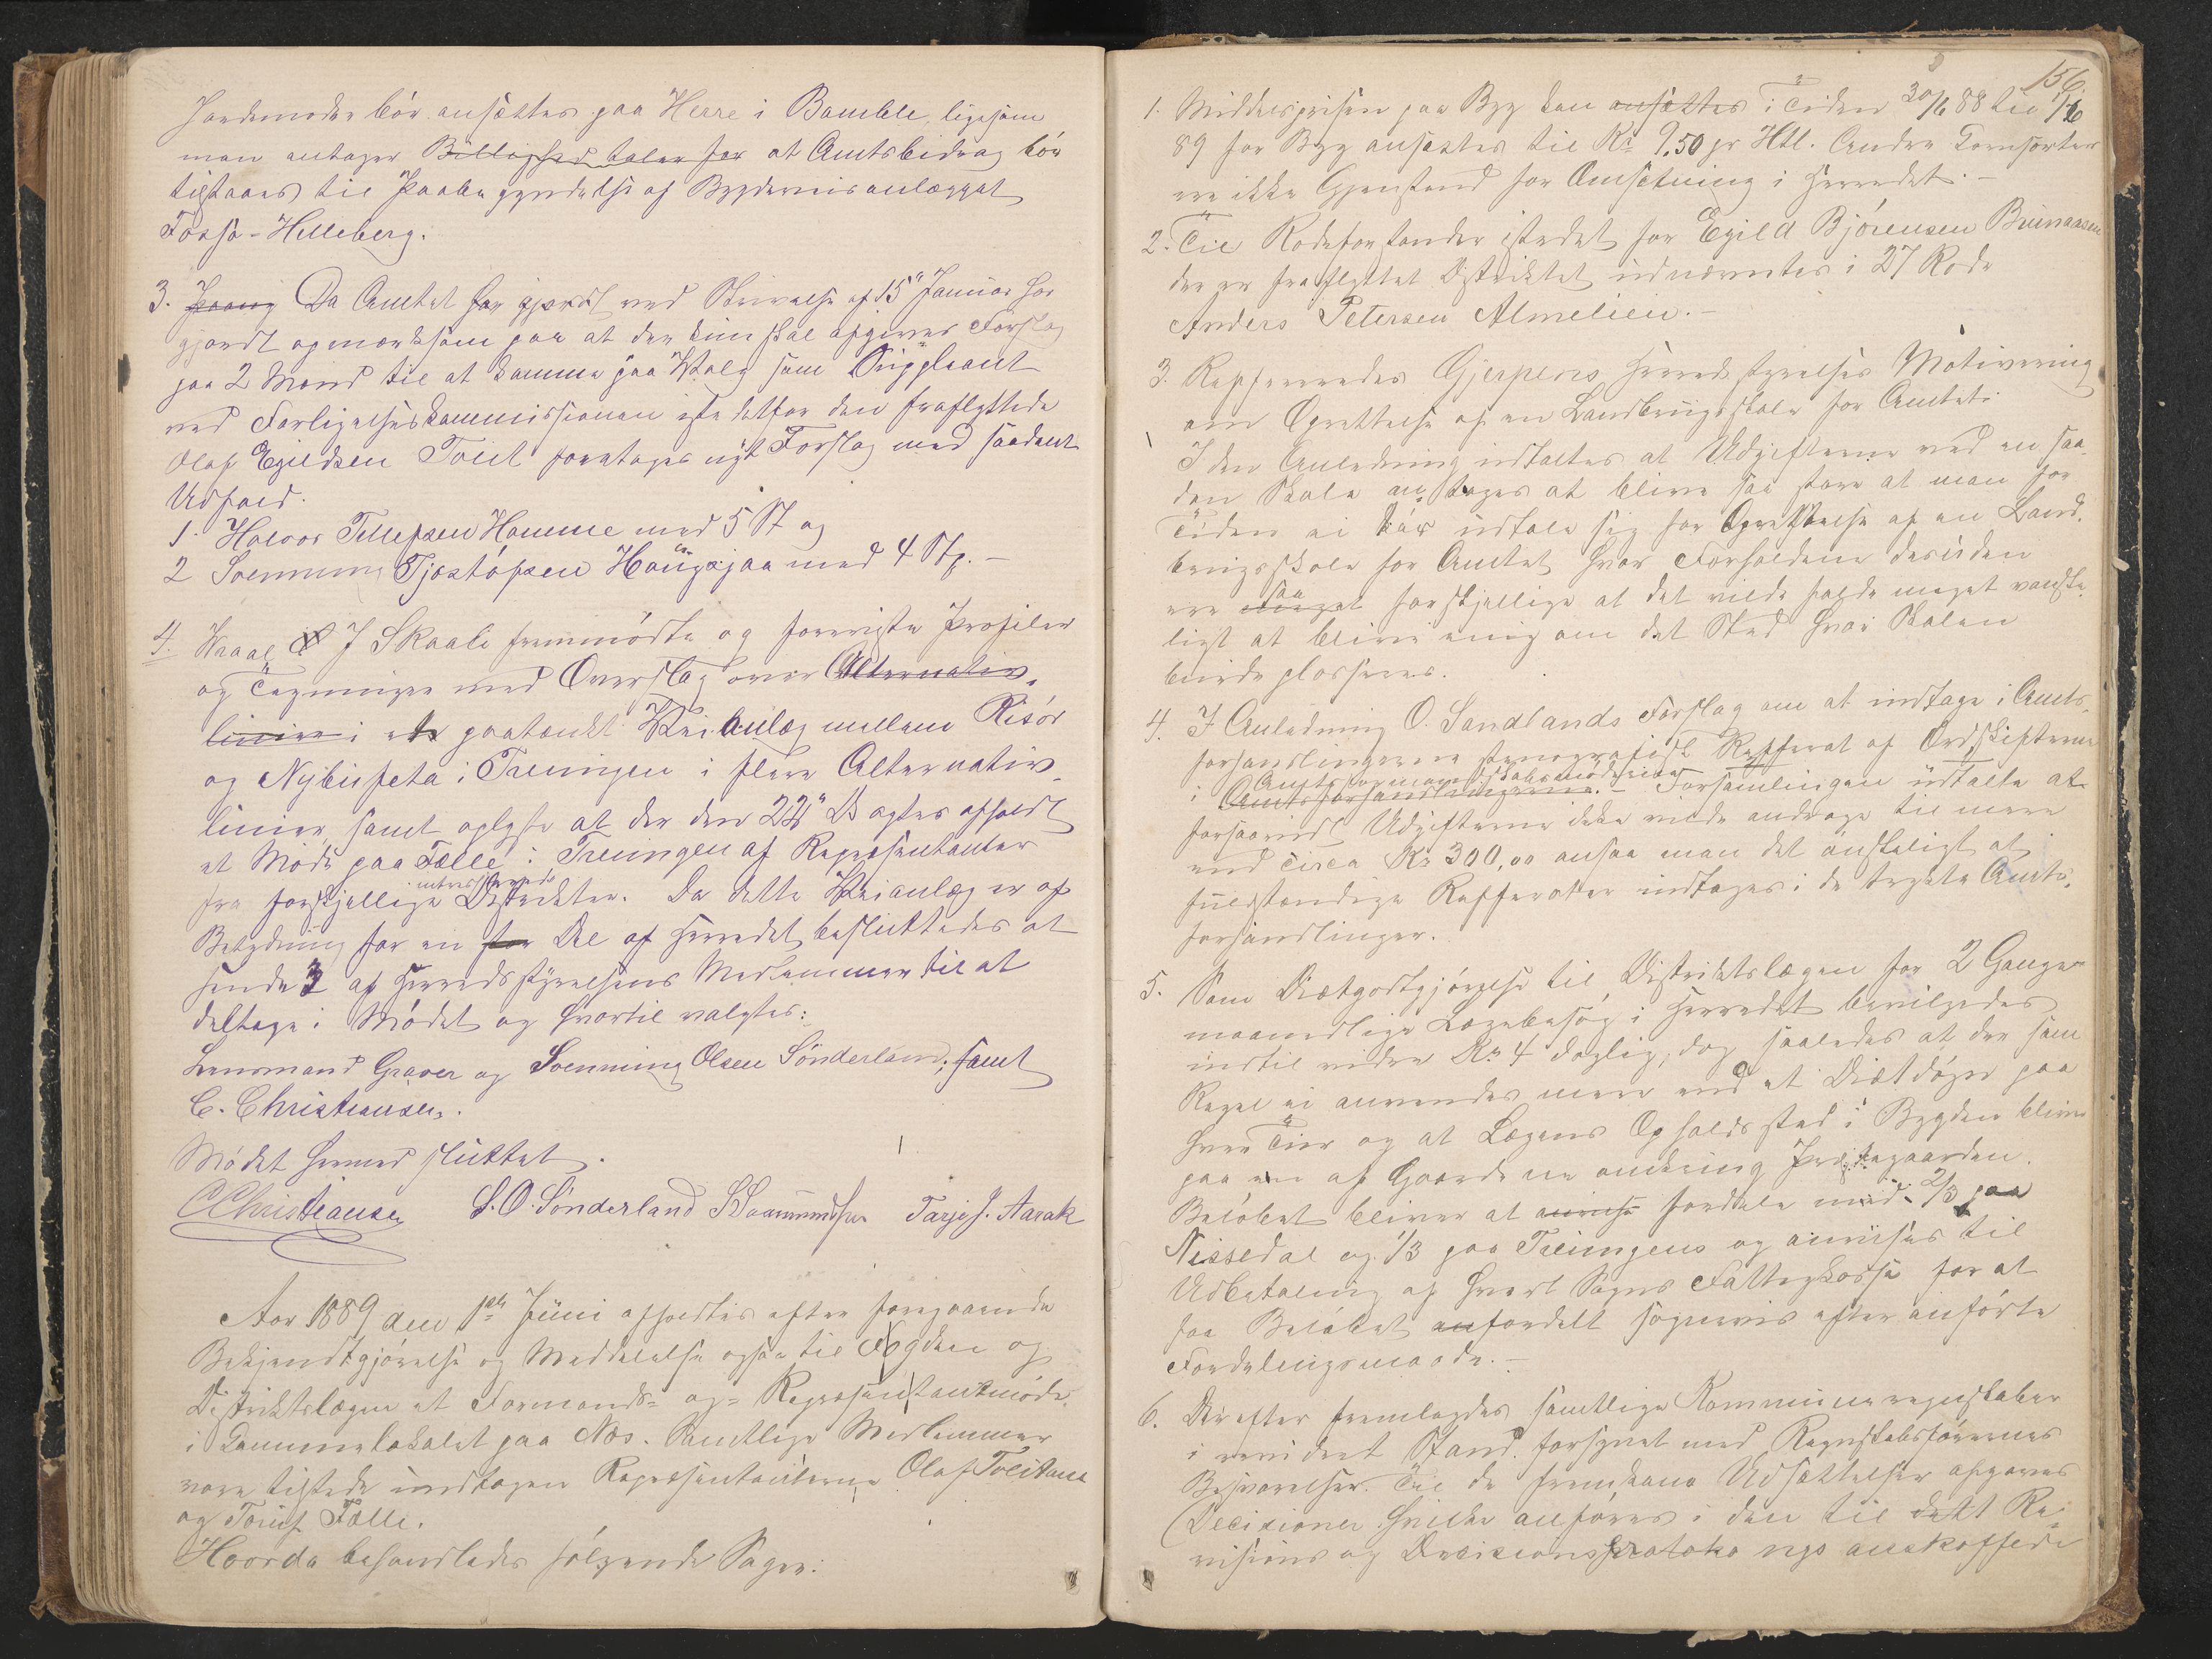 Jordemoder bör ansættes paa Herre i Bamble, ligesom
man antager Billighed taler for at Amtsbidrag bör
tilstaaes til Paabegyndelse af Bygdeveisanlægget
Fosse-Helleberg.
3. Da Amtet har gjordt ved Skrivelse af 15de Januar har
gjordt opmærksom paa at der kun skal afgives Forslag
paa 2 Mænd til at komme paa Valg som Suppleant
ved Forligelseskommissionen istedetfor den fraflyttede
Olaf Egildsen Tveit foretages nyt Forslag med saadant
Udfald.
1. Halvor Tellefsen Homme med 5 St og
2 Svenning Tjøstófsen Haugsjaa med 4 St. –
4. Kraal J Skaali fremmödte og foreviste Profiler
og Tegninger med Overslag over Alternativ-
linien i et paatænkt Veianlæg mellem Risör
og Nybufeta i Treungen i flere Alternativ-
linier, samt oplyste at der den 22de ds agtes afholdt
et Möde paa Fælle i Treungen af Repræsentanter
fra forskjellige interesserede Distrikter. Da dette Veianlæg er af
Betydning for en stor Del af Herredet besluttedes at
sende 3 af Herredsstyrelsens Medlemmer til at
deltage i Mödet og hvortil valgtes:
Lensmand Graver og Svenning Olsen Sönderland, samt
C. Christiansen.
Mödet hermed sluttet.
C Christiansen S. O. Sönderland Tarje J. Aarak
Aar 1889 den 1ste Juni afholdtes efter foregaaende
Bekjendtgjörelse og Meddelelse ogsaa til Fogden og
Distriktslægen et Formands- og Repræsentantmöde
i Kommunelokalet paa Næs. Samtlige Medlemmer
vare tilstede undtagen Repræsentanterne Olaf Tveitane
og Toruf Fælle.
Hvorda behandledes fölgende Sager:
156
1. Middelsprisen paa Byg kan ansættes i Tiden 30/6 88 til 1/6
89 for Byg ansættes til Kr 9.50 pr Htl. Andre Kornsorter
ere ikke Gjenstand for Omsetning i Herredet. –
2. Til Rodeforstander istedet for Egild Björensen Brunaasen
der er fraflyttet Distriktet udnævntes i 27 Rode
Anders Petersen Almelien. –
3. Reffereredes Gjerpens Herredsstyrelses Motivering
om Oprettelse af en Landbrugsskole for Amtet.
I den Anledning udtaltes at Udgifterne ved en saa-
dan Skole antages at blive saa store at man for
Tiden ei bör udtale sig for Oprettelse af en Land-
brugsskole for Amtet hvor Forholdene desuden
ere saa meget forskjellige at det vilde falde meget vanske-
ligt at blive enig om det Sted hvor Skolen
burde plasseres.
4. I Anledning O. Sandlands Forslag om at indtage i Amts-
forhandlingerne stenografisk Refferat af Ordskifterne
i Amtsformandskabsmöderne Amtsforhandlingerne. – Forsamlingen udtalte at
forsaavidt Udgifterne ikke vilde andrage til mere
end circa Kr 300,00 ansaa man det önskeligt at
fuldstændige Refferater indtages i de trykte Amts-
forhandlinger.
5. Som Diætgodtgjörelse til Distriktslægen for 2 Gange
maanedlige Lægebesög i Herredet bevilgedes
indtil videre Kr 4 daglig, dog saaledes at der som
Regel ei anvendes mere end et Diætdögn paa
hver Tur og at Lægens Opholdssted i Bygden bliver
paa en af Gaardene omkring Prestegaarden.
Belöbet bliver at fordele med 2/3 paa
Nissedal og 1/3 paa Treungens og anvises til
Udbetaling af hvert Sogns Fattigkasse for at
faa Belöbet fordelt sognevis efter anförte
Fordelingsmaade. –
6. Derefter fremlagdes samtlige Kommuneregnskaber
i revideret Stand forsynet med Regnskabsförernes
Besvarelser. Til de fremkomne Udsættelser afgaves
Decisioner hvilke anföres i den til dett Re-
visions og Decisionsprotoko ngs anskaffede